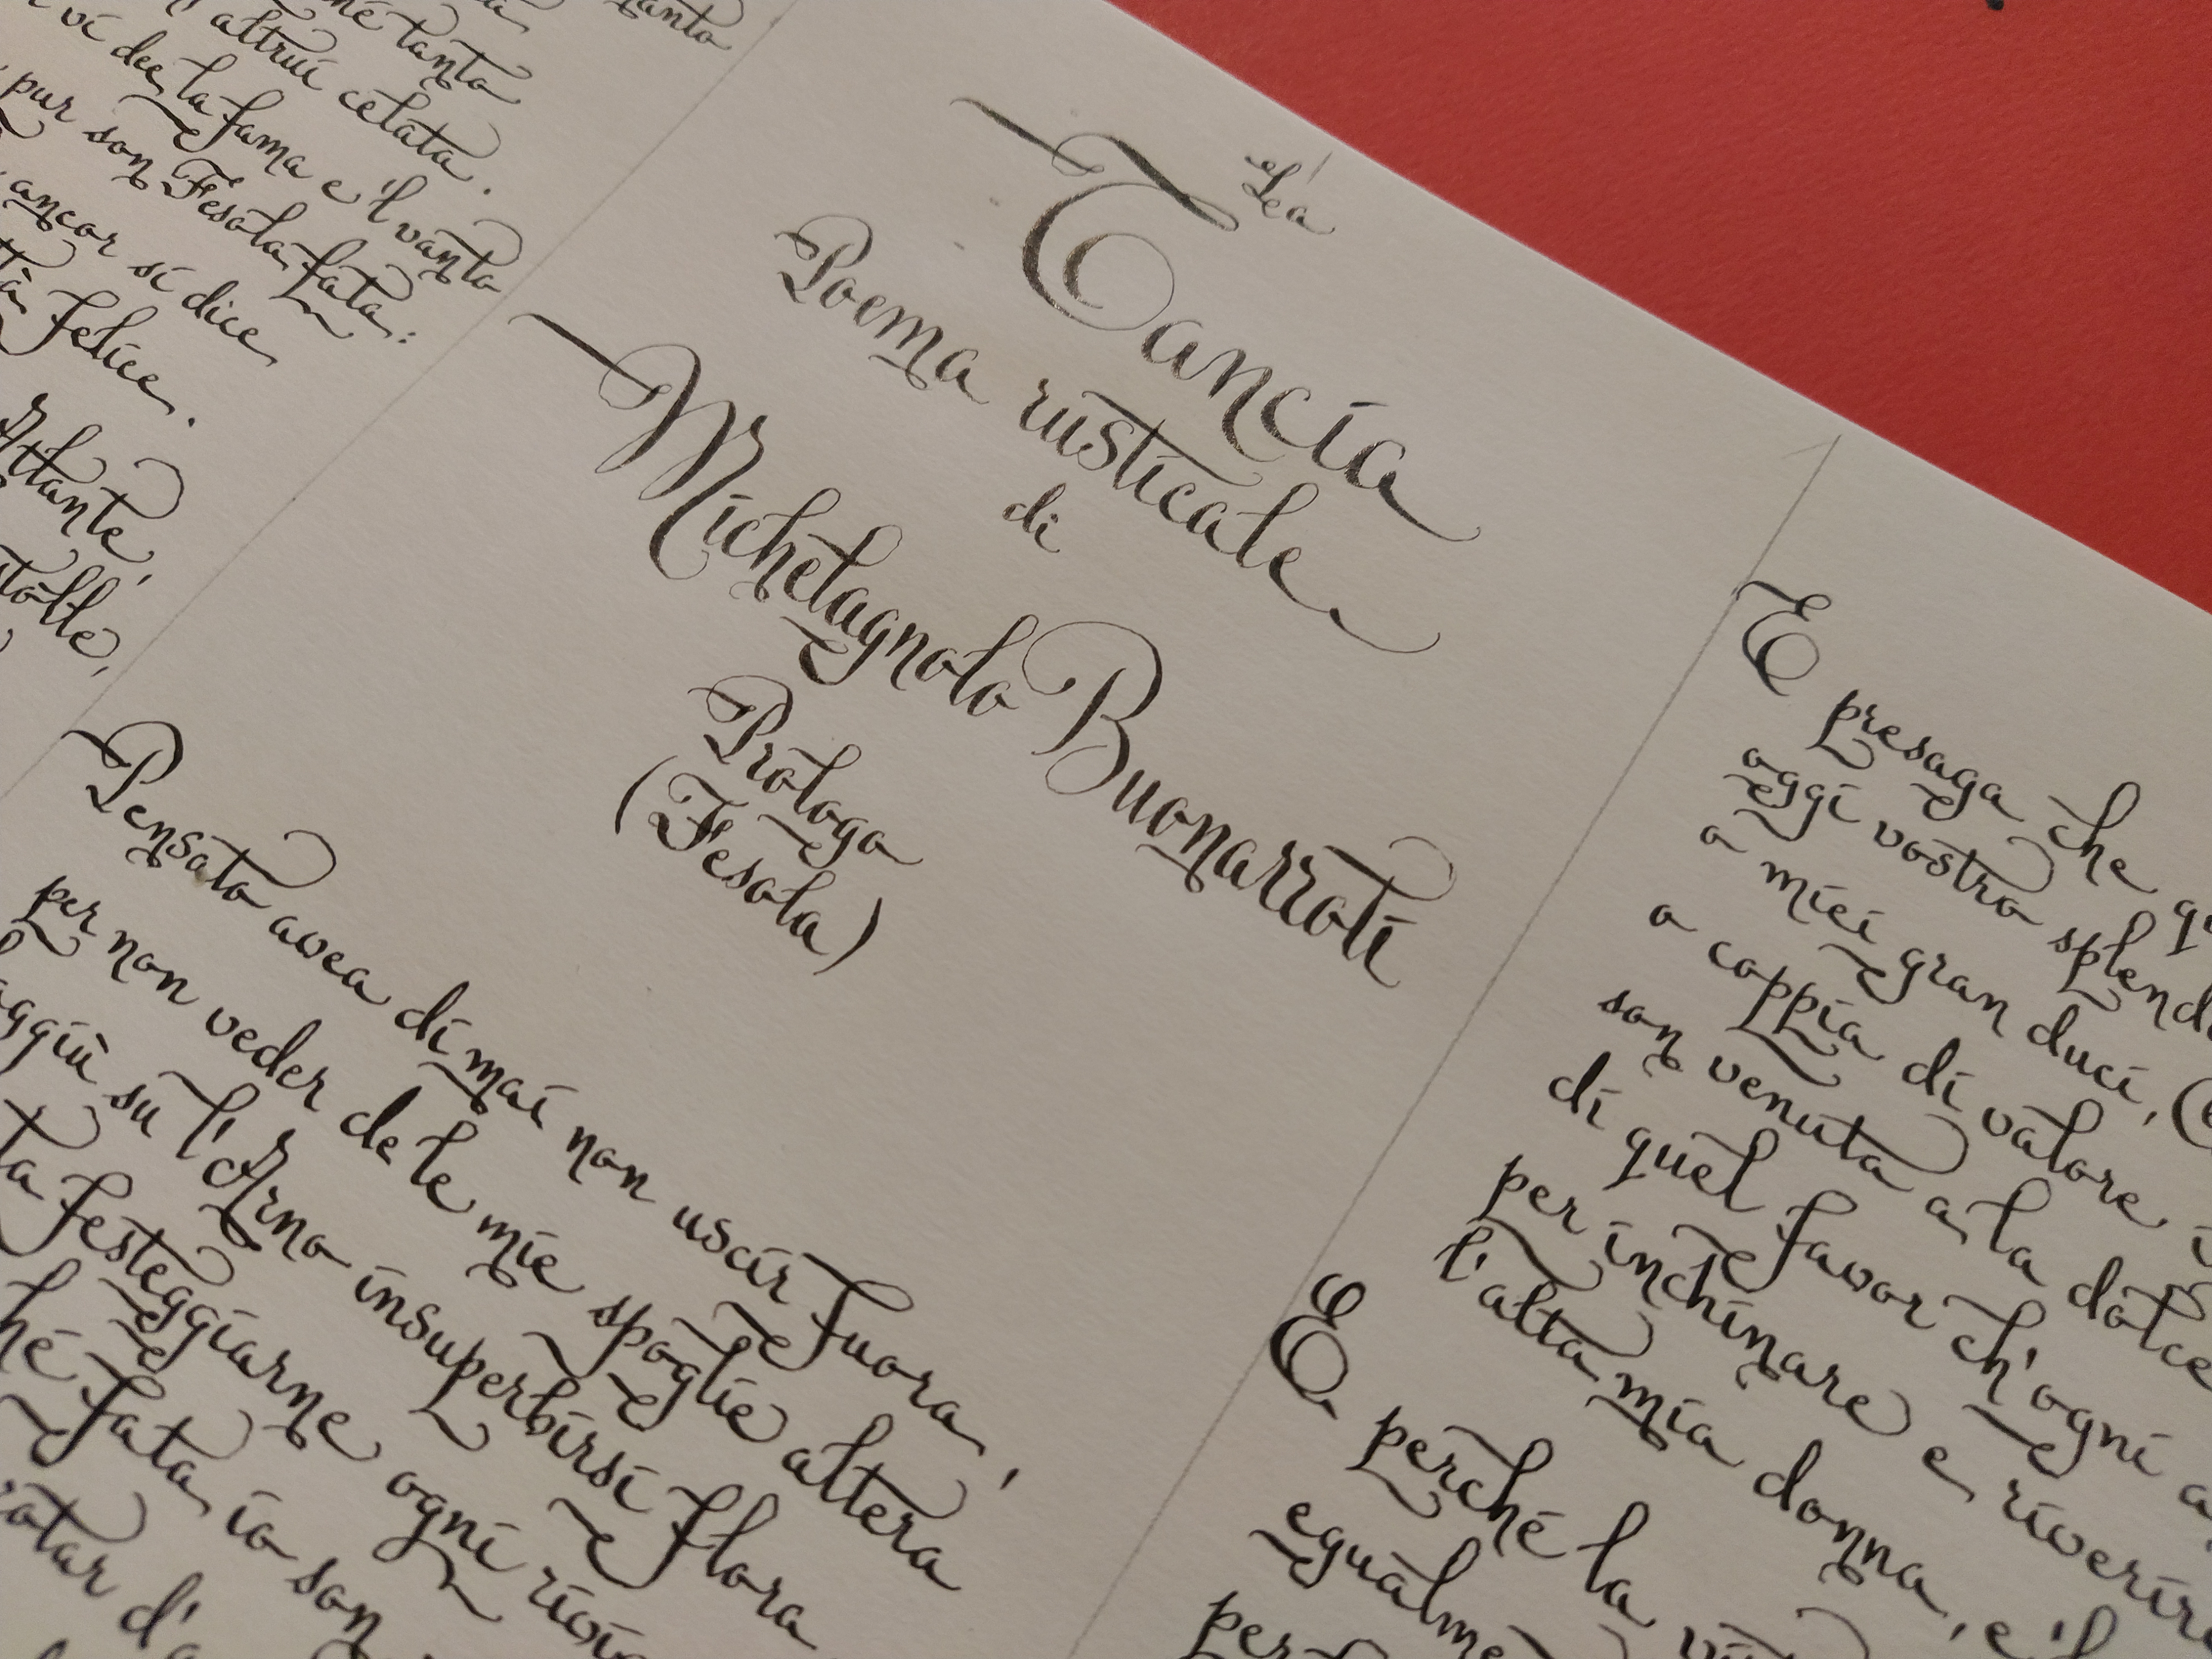 tanto
né tanta
altrui celata.
vi dee la fama e 'l vanto
pur son Fesola fata:
ancor si dice
felice.
Atlante,
La
Tancia
Poema rusticale
di
Michelagnolo Buonarroti
Prologo
(Fesola)
Pensato avea di mai non uscir fuora,
per non veder de le mie spoglie altera
su l'Arno insuperbirsi Flora
festeggiarne ogni
fata io son
E presaga che
oggi vostro
a miei gran duci,
a coppia di valore
son venuta a la dolce
di quel favor ch'ogni
per inchinare e riverire
l'alta mia donna, e 'l
E perché la